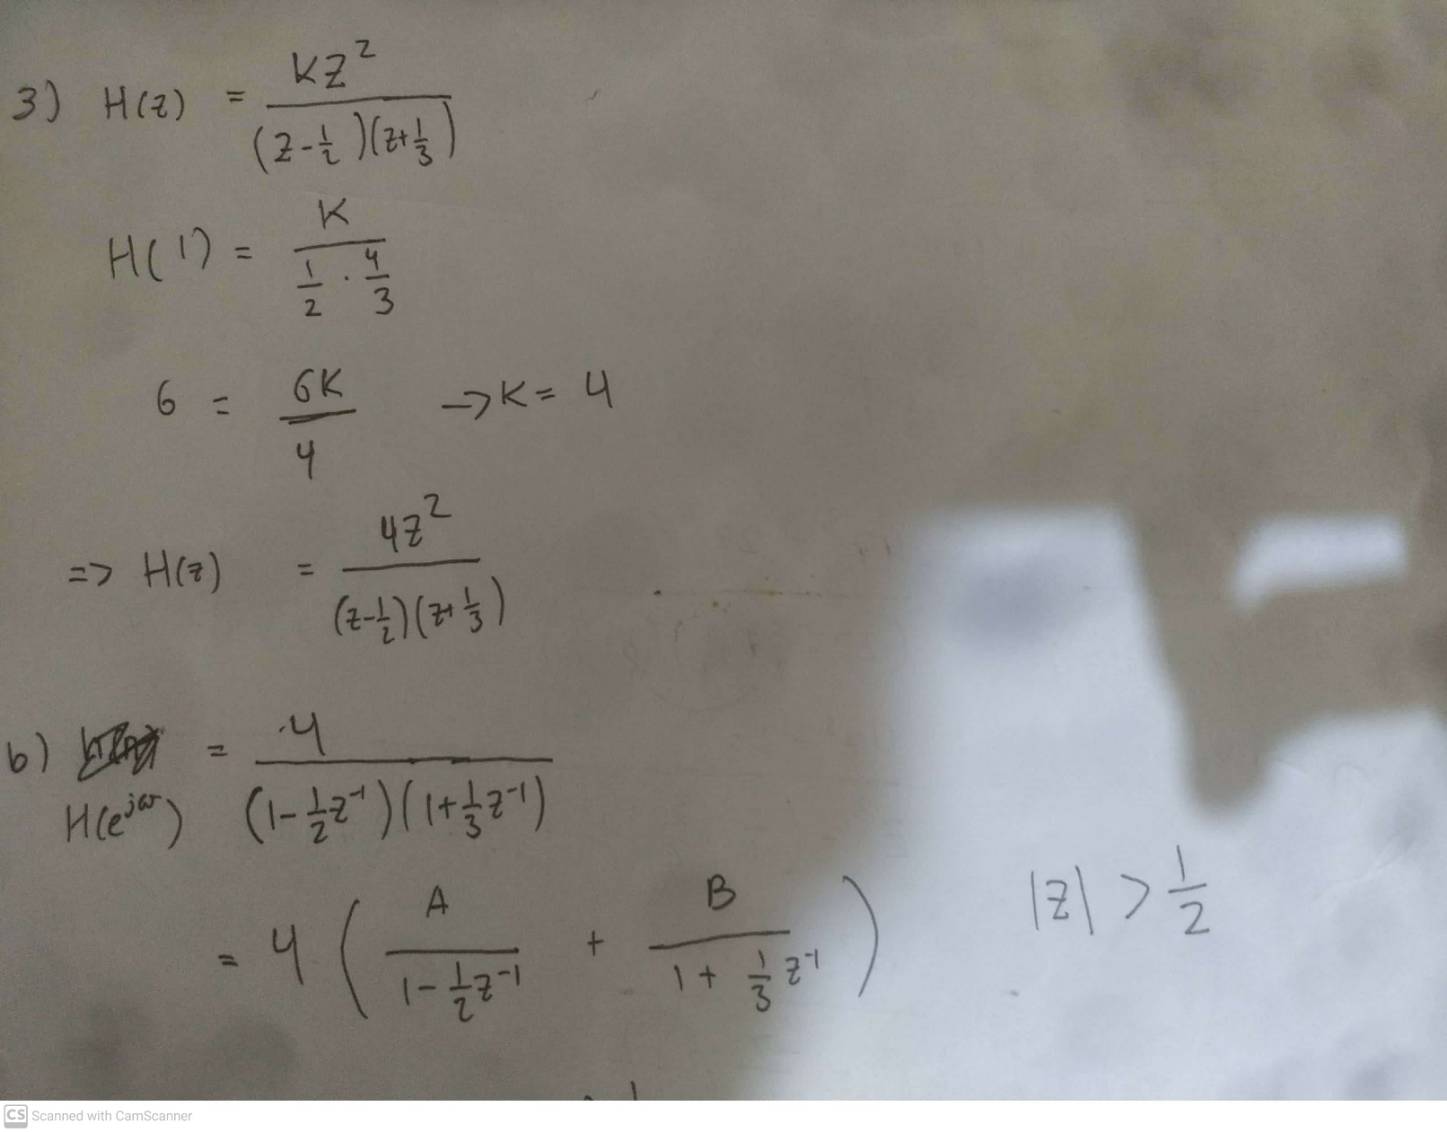 3) H(z) = KZ² / (z-1/2)(z+1/3)
H(1) = K / 1/2 · 4/3
6 = 6K / 4 → K = 4
=> H(z) = 4z² / (z-1/2)(z+1/3)
b) = 4 / (1-1/2z⁻¹)(1+1/3z⁻¹)
H(e^jω)
= 4 ( A / 1-1/2z⁻¹ + B / 1+1/3z⁻¹ ) |z| > 1/2
CS Scanned with CamScanner